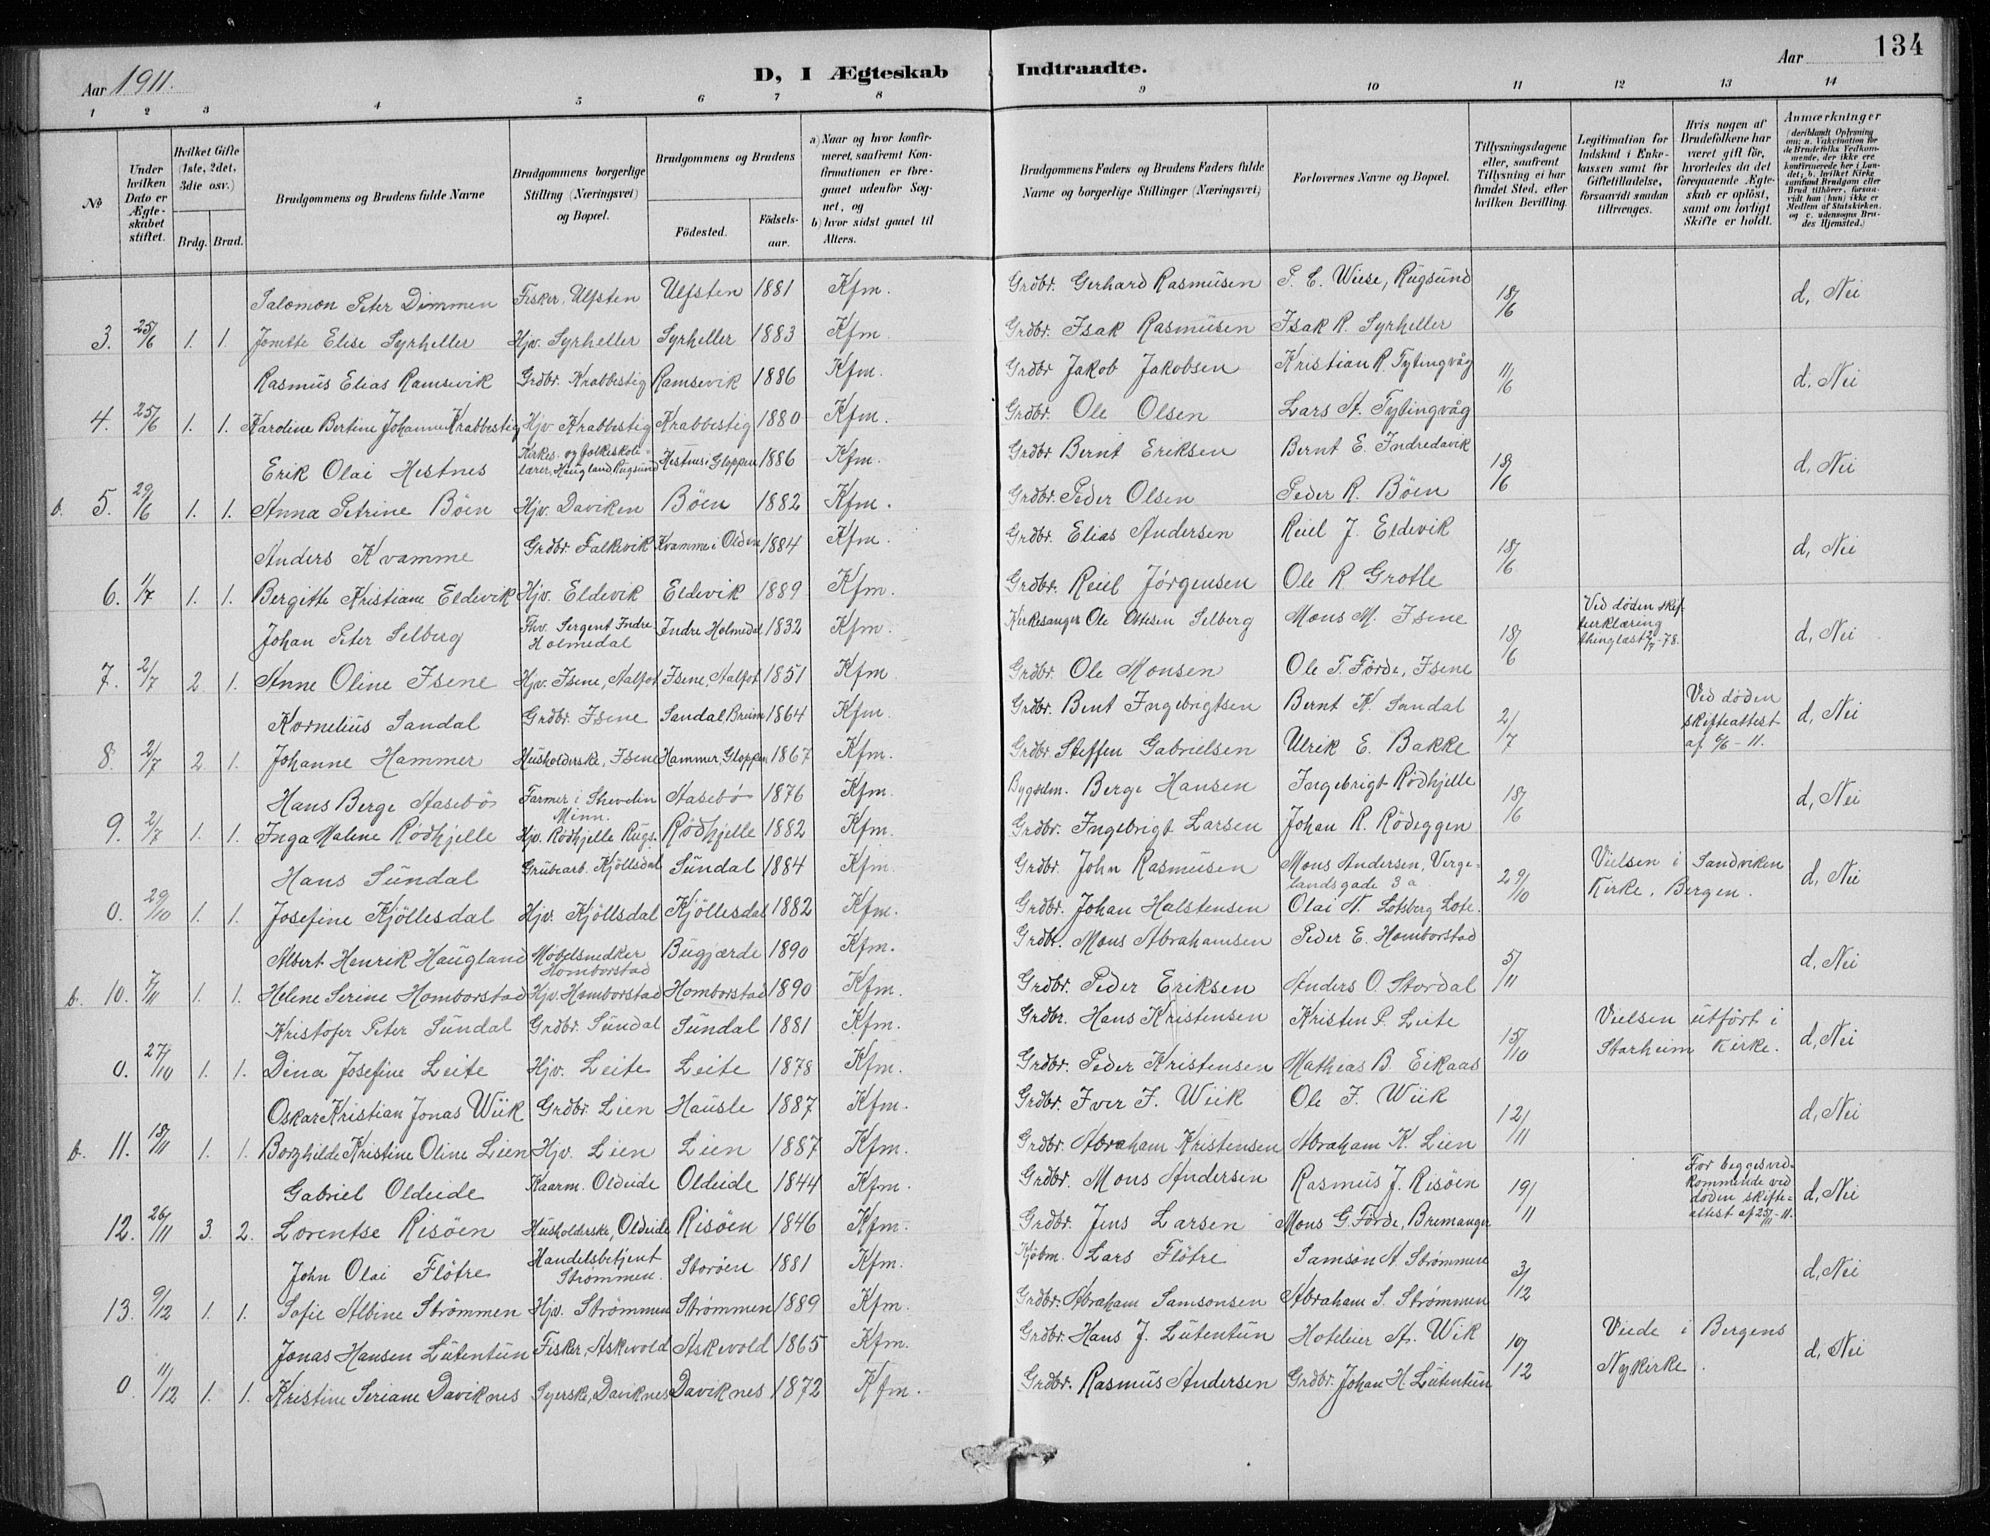 134
Aar 1911. D, I Ægteskab Indtraadte. Aar
1 2 3 4 5 6 7 8 9 10 11 12 13 14
№
Under hvilken Dato er Ægteskabet stiftet.
Hvilket Gifte (1ste, 2det, 3die osv.)
Brdg. Brud.
Brudgommens og Brudens fulde Navne
Brudgommens borgerlige Stilling (Næringsvei) og Bopæl.
Brudgommens og Brudens
Fødested. Fødselsaar.
a) Naar og hvor konfirmeret, saafremt Konfirmationen er foregaaet udenfor Sognet, og
b) hvor sidst gaaet til Alters.
Brudgommens Faders og Brudens Faders fulde Navne og borgerlige Stillinger (Næringsvei)
Forlovernes Navne og Bopæl.
Tillysningsdagene eller, saafremt Tillysning ei har fundet Sted, efter hvilken Bevilling.
Legitimation for Indskud i Enkekassen samt for Giftetilladelse, forsaavidt saadan tiltrænges.
Hvis nogen af Brudefolkene har været gift før, hvorledes da det foregaaende Ægteskab er opløst, samt om lovligt Skifte er holdt.
Anmærkninger (deriblandt Oplysning om: a. Vakcination for de Brudefolks Vedkommende, der ikke ere konfirmerede her i Landet; b. hvilket Kirkesamfund Brudgom eller Brud tilhører, forsaavidt han (hun) ikke er Medlem af Statskirken, og c. udensogns Brudes Hjemsted.)
Salomon Peter Dimmen Fisker, Ulfsten Ulfsten 1881 Kfm. Grdbr. Gerhard Rasmusen P. E. Wiese, Rugsund 18/6 d, Nei
3. 25/6 1. 1. Jonette Elise Syrheller Hjv. Syrheller Syrheller 1883 Kfm. Grdbr. Isak Rasmusen Isak R. Syrheller
Rasmus Elias Ramsevik Grdbr. Krabbestig Ramsevik 1886 Kfm. Grdbr Jakob Jakobsen Kristian R. Tytingvåg 11/6 d. Nei
4. 25/6 1. 1. Karoline Bertine Johanne Krabbestig Hjv Krabbestig Krabbestig 1880 Kfm. Grdbr. Ole Olsen Lars A. Tytingvåg
Erik Olai Hestnes Kirkes. og folkeskolelærer, Haugland Rugsund Hestnes i Gloppen 1886 Kfm. Grdbr Bernt Eriksen Bernt E. Indredavik 18/6 d, Nei
b. 5. 29/6 1. 1. Anna Petrine Böen Hjv. Daviken Böen 1882 Kfm. Grdbr. Peder Olsen Peder R. Böen
Anders Kvamme Grdbr. Falkevik Kvamme i Olden 1884 Kfm. Grdbr. Elias Andersen Reiel J. Eldevik 18/6 d, Nei
6. 1/7 1. 1. Bergitte Kristiane Eldevik Hjv. Eldevik Eldevik 1889 Kfm. Grdbr. Reiel Jørgensen Ole R. Grotle
Johan Peter Selberg Fhv. Sergent Indre Holmedal Indre Holmedal 1832 Kfm. Kirkesanger Ole Ottesen Selberg Mons M. Isene 18/6 Ved døden skifteerklæring thinglæst 2/7-78. d, Nei
7. 2/7 2 1. Anne Oline Isene Hjv. Isene, Aalfot Isene, Aalfot 1851 Kfm. Grdbr. Ole Monsen Ole T. Förde, Isene
Kornelius Sandal Grdbr. Isene Sandal Breim 1864 Kfm. Grdbr. Bent Ingebrigtsen Bernt K. Sandal 2/7 Ved døden skifteattest af 9/6-11. d, Nei
8. 2/7 2 1. Johanne Hammer Husholderske, Isene Hammer, Gloppen 1867 Kfm. Grdbr Steffen Gabrielsen Ulrik E. Bakke
Hans Berge Aasebö Farmer i Shevelin Minn. Aasebö 1876 Kfm. Bygselm. Berge Hansen Ingebrigt Rödhjelle 18/6 d, Nei
9. 2/7 1. 1. Inga Maline Rödhjelle Hjv. Rödhjelle Rugs. Rödhjelle 1882 Kfm. Grdbr. Ingebrigt Larsen Johan R. Rödeggen
Hans Sundal Grubearb. Kjöllsdal Sundal 1884 Kfm. Grdbr. John Rasmusen Mons Andersen, Vergelandsgade 3a 29/10 Vielsen i Sandviken Kirke, Bergen. d, Nei
0. 29/10 1. 1. Josefine Kjöllesdal Hjv. Kjöllsdal Kjöllesdal 1882 Kfm. Grdbr. Johan Halstensen Olai N. Lotsberg Lote.
Albert Henrik Haugland Møbelsnedker Homborstad Bugjærde 1890 Kfm. Grdbr. Mons Abrahamsen Peder E. Homborstad 5/11 d, Nei
b. 10. 7/11 1. 1. Helene Serine Homborstad Hjv. Homborstad Homborstad 1890 Kfm. Grdbr. Peder Eriksen Anders O. Stordal
Kristofer Peter Sundal Grdbr. Sundal Sundal 1881 Kfm. Grdbr. Hans Kristensen Kristen P. Leite 15/10 Vielsen utført i Starheim Kirke. d, Nei
0. 27/10 1. 1. Dina Josefine Leite Hjv. Leite Leite 1878 Kfm. Grdbr. Peder Kristensen Mathias B. Eikaas
Oskar Kristian Jonas Wiik Grdbr. Lien Hausle 1887 Kfm. Grdbr. Iver J. Wiik Ole J. Wiik 12/11 d, Nei
b. 11. 18/11 1. 1. Borghilde Kristine Oline Lien Hjv. Lien Lien 1887 Kfm. Grdbr. Abraham Kristensen Abraham K. Lien
Gabriel Oldeide Kaarm. Oldeide Oldeide 1844 Kfm. Grdbr. Mons Andersen Rasmus J. Risöen 19/11 For begges vedkommende ved döden skifteattest af 25/11-11. d, Nei
12. 26/11 3. 2. Lorentse Risöen Husholderske, Oldeide Risöen 1846 Kfm. Grdbr. Jens Larsen Mons G. Förde, Bremanger
John Olai Flötre Handelsbetjent Strømmen. Storöen 1881 Kfm. Kjøbm. Lars Flötre Samson A. Strømmen 3/12 d, Nei
13. 9/12 1. 1. Sofie Albine Strømmen Hjv. Strømmen Strømmen 1889 Kfm. Grdbr. Abraham Samsonsen Abraham S. Strømmen
Jonas Hansen Lutentun Fisker, Askevold Askevold 1865 Kfm. Grdbr. Hans J. Lutentun Hoteleier A. Wik 10/12 Viede i Bergens Nykirke. d, Nei
0. 11/12 1. 1. Kristine Seriane Daviknes Syerske, Daviknes Daviknes 1872 Kfm. Grdbr. Rasmus Andersen Grdbr. Johan H. Lutentun